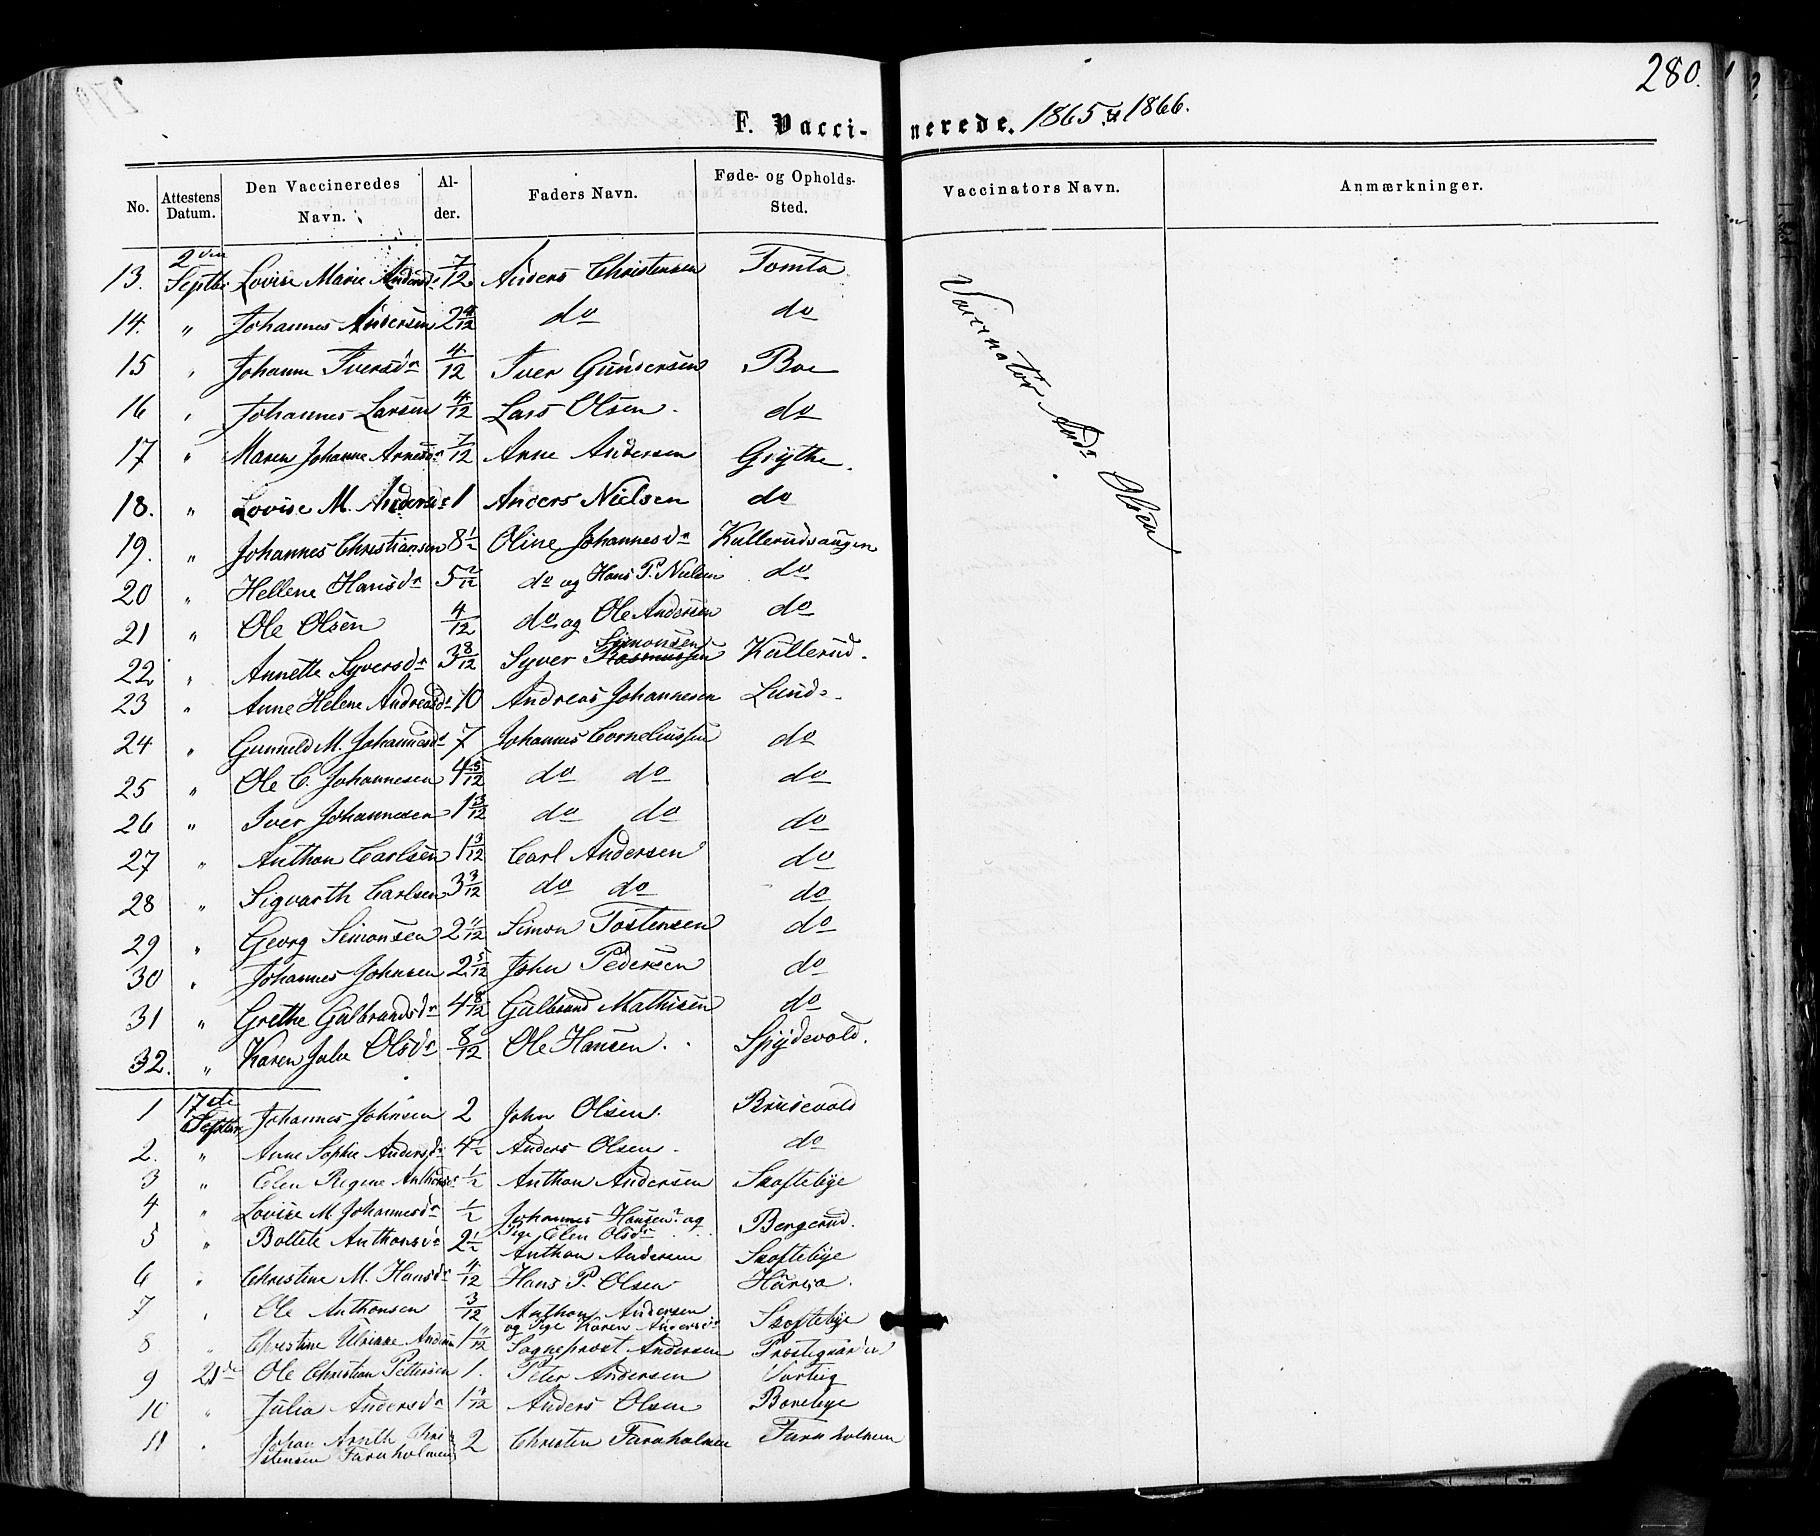 280.
F. Vacci-nerede. 1865 & 1866.
No. Attestens Datum. Den Vaccineredes Navn. Al-der. Faders Navn. Føde- og Opholds-Sted. Vaccinators Navn. Anmærkninger.
13. 2den Septbr Lovise Marie Andersdr 7/12 Anders Christensen Tomta
14. " Johannes Andersen 2 4/12 do do
15 " Johanne Iversdr 4/12 Iver Gundersen Boe
16 " Johannes Larsen 4/12 Lars Olsen. do
17 " Maren Johanne Arnesdr 7/12 Arne Andersen Grythe.
18. " Lovise M. Andersdr 1 Anders Nielsen do
19. " Johannes Christiansen 8 1/2 Oline Johannesdr Kullerudsaugen
20 " Hellene Hansdr 5 2/12 do og Hans P. Nielsen do
21 " Ole Olsen 4/12 do og Ole Andersen do
22 " Annette Syversdr 3 8/12 Syver Rasmussen Simonsen Kullerud.
23 " Anne Helene Andreasdr 10 Andreas Johannesen Lund.
24 " Gunneld M. Johannesdr 7 Johannes Corneliussen do
25 " Ole C. Johannesen 4 5/12 do do do
26 " Iver Johannesen 1 3/12 do do do
27 " Anthon Carlsen 1 3/12 Carl Andersen do
28 " Sigvarth Carlsen 3 3/12 do do do
29 " Georg Simonsen 2 11/12 Simon Tostensen do
30 " Johannes Johnsen 2 5/12 John Pedersen do
31 " Grethe Gulbrandsdr 4 8/12 Gulbrand Mathisen do
32. " Karen Julie Olsdr 8/12 Ole Hansen. Spydevold.
1 17de Septbr Johannes Johnsen 2 John Olsen. Brusevold
2. " Anne Sophie Andersdr 4 1/2 Anders Olsen. do
3 " Elen Regine Anthonsdr 1/2 Anthon Andersen Skoftebye
4 " Lovise M. Johannesdr 1/2 Johannes Hansen og Pige Elen Olsdr Bergerud.
5 " Bollete Anthonsdr 2 1/2 Anthon Andersen Skoftebye
6 " Christine M. Hansdr 4/12 Hans P. Olsen
7 " Ole Anthonsen 3/12 Anthon Andersen og Pige Karen Andersdr Skoftebye
8 " Christine Ulrikke Andersen 1 11/12 Sogneprost Andersen Prostigaarden
9 21de Ole Christian Pettersen 1. Peter Andersen
10 " Julia Andersdr 1 Anders Olsen Borebye
11 " Johan Arnth Chri-stensen Farnholmen 2 Christen Farnholmen Farnholmen
Vaccinator Andr Olsen